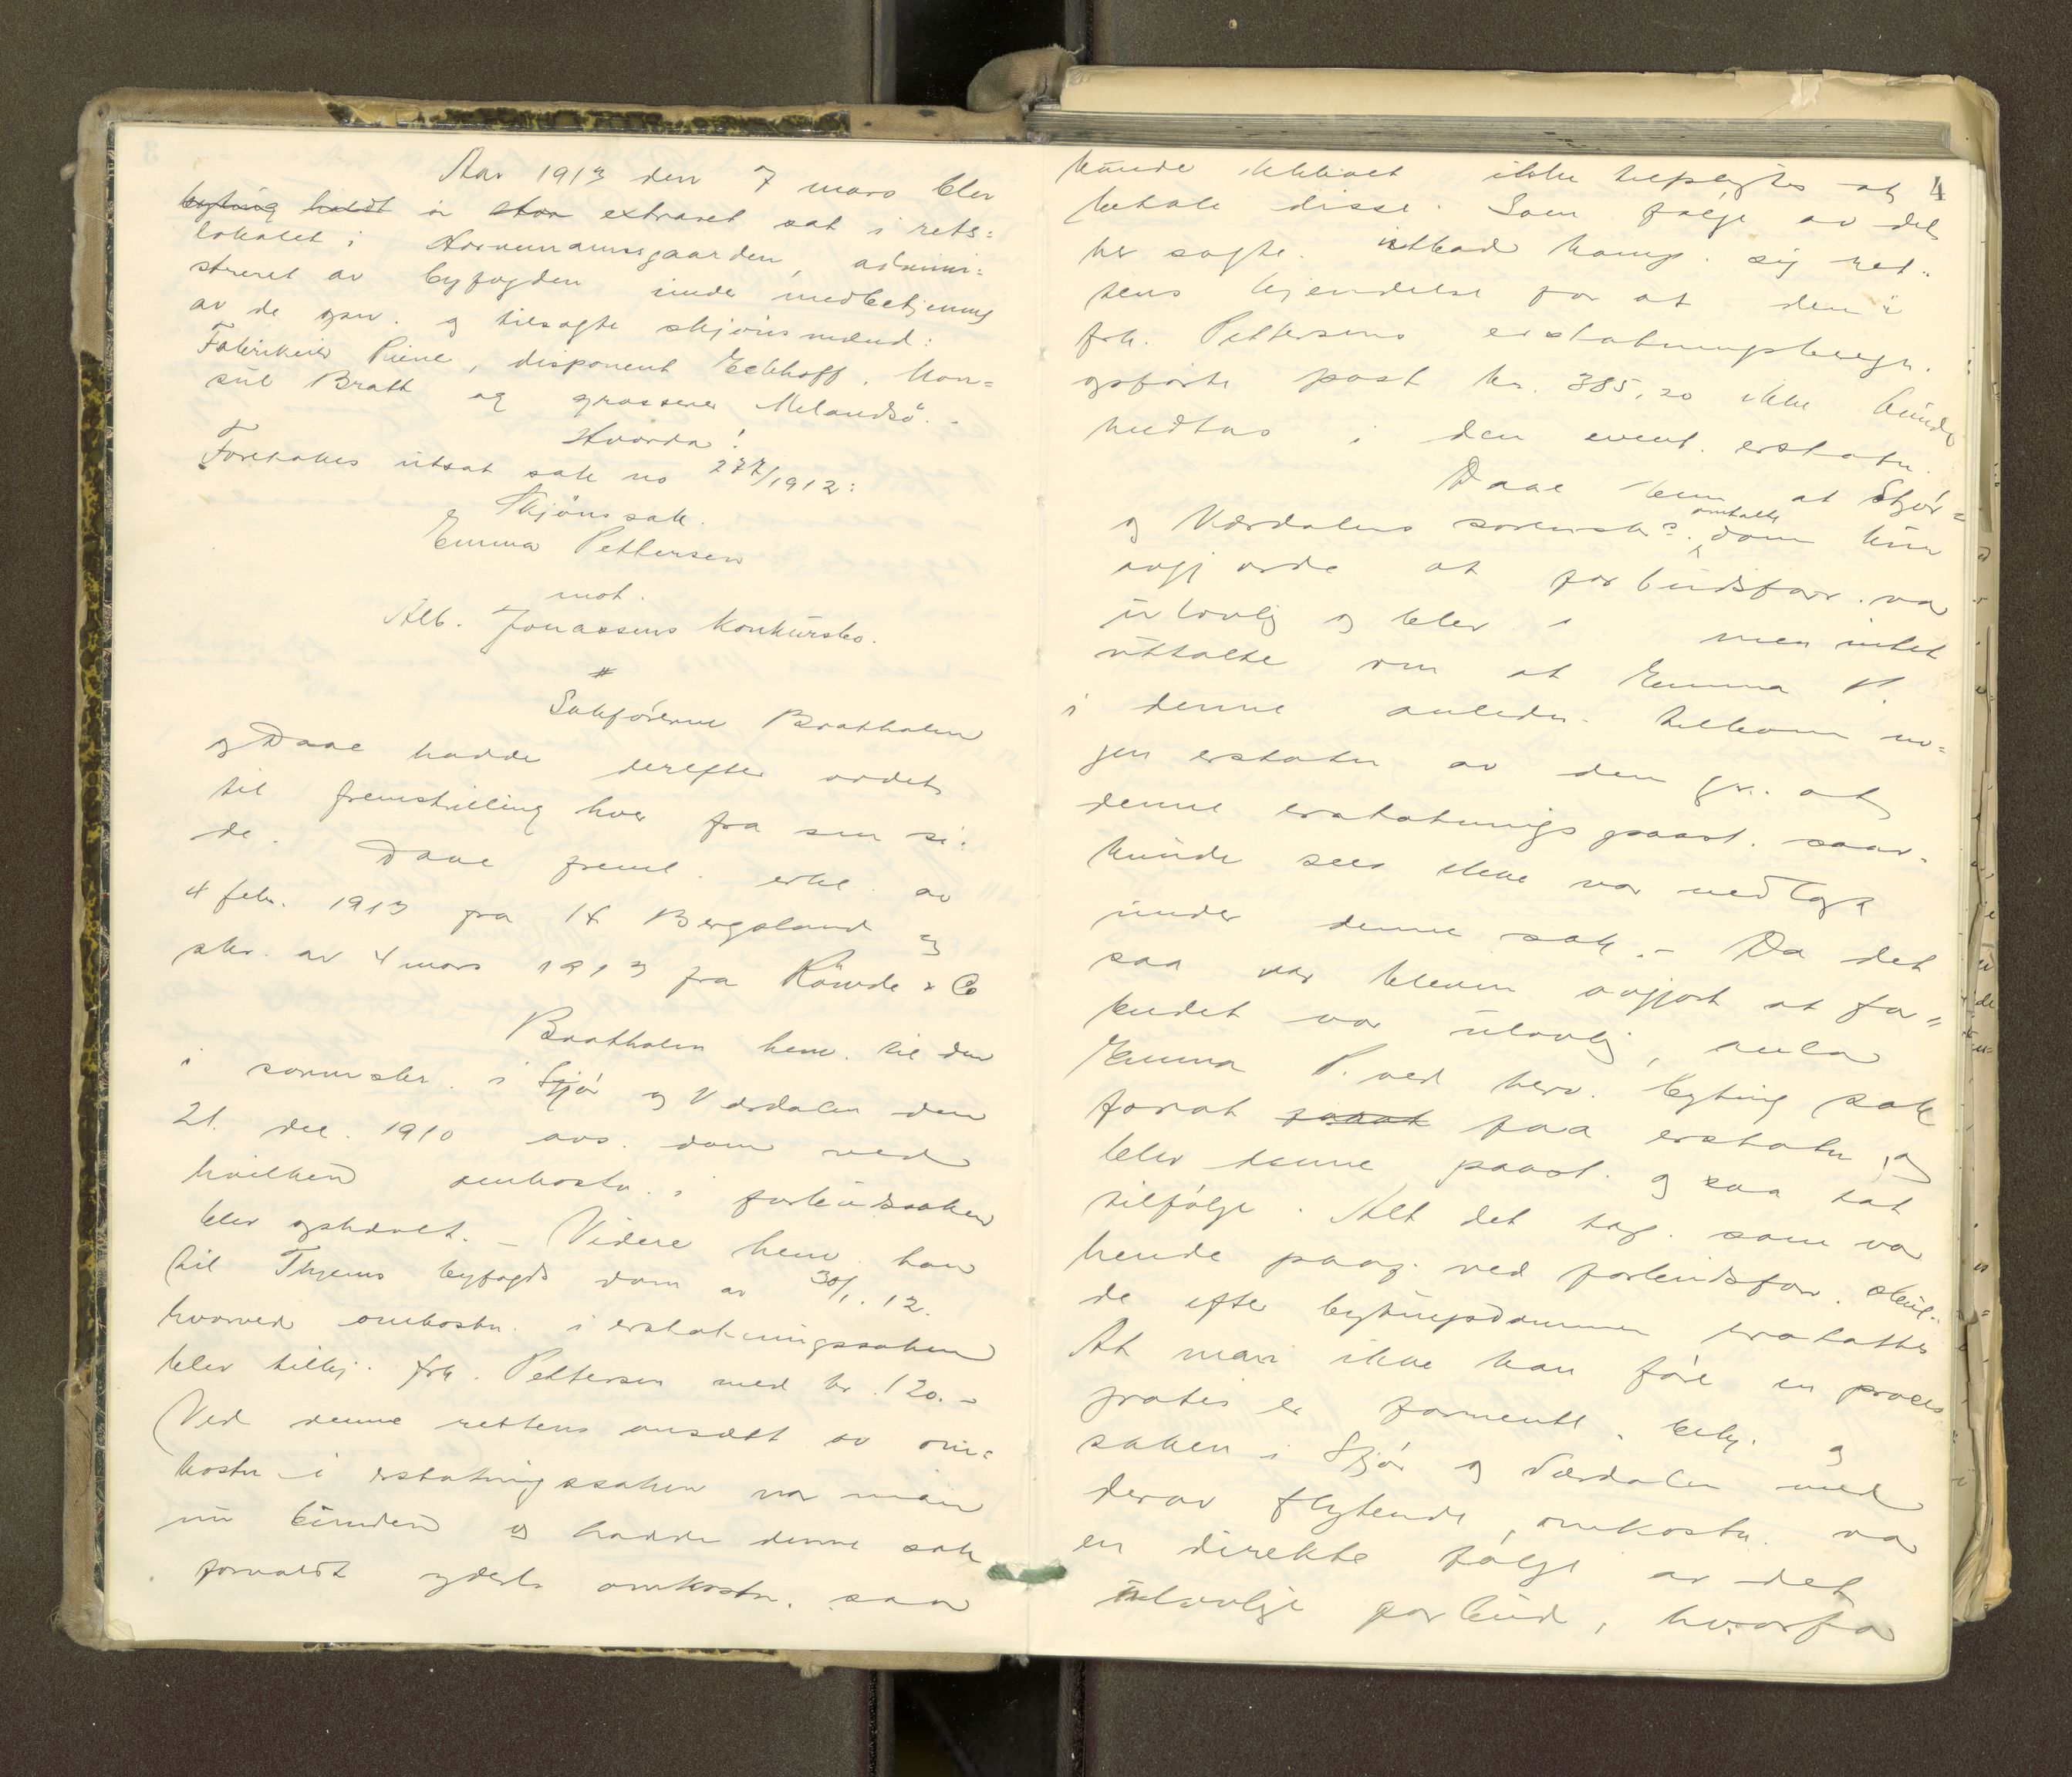 Aar 1913 den 7 mars blev
byting holdt en extraret sat i rets=
lokalet i Hornemansgaarden, admini=
streret av byfogden under medbetjening
av de opn. og tilsagte skjönsmænd:
Fabrikeier Piene, disponent Eckhoff, kon=
sul Bratt og grosserer Melandsö.-
Hvorda!
Foretokes utsat sak no 277/1912:
Skjönssak.
Emma Pettersen
mot.
Alb. Jonassens konkursbo.
#
Sakförerne Bratholm
og Daae hadde derefter ordet
til fremstilling hver fra sin si=
de. Daae freml. erkl. av
4 febr. 1913 fra H Bergsland og
skr. av 4 mars 1913 fra Römde & Co
Bratholm henv. til den
i sorenskr. i Stjör og Værdalen den
21. dec. 1910 avs. dom ved
hvilken omkostn. i forbudssaken
blev ophævet. - Videre henv. han
til Thjems byfogds dom av 30/1. 12.
hvorved omkostn. i erstatningssaken
blev tilkj. frk. Pettersen med kr. 120.-
Ved denne rettens ansætt av om=
kostn i erstatningssaken var man
nu bunden og hadde denne sak
forvoldt yderl. omkostn. saa
4
kunde ikke tilpligtes at
betale disse. Som fölge av det
her sagte. utbad komp. sig ret=
tens kjendelse for at den i
frk. Pettersens erstatningsbereg.
opförte post kr. 385,20 ikke kunde
medtas i den event. erstatn.
Daae bem. at Stjör=
og Værdalens sorenskr. omtalte dom kun
avgjorde at forbudsforr. var
ulovlig og blev men intet
uttalte om at Emma P
i denne anledn. tilkom no=
gen erstatn av den gr. at
denne erstatnings paast. saa=
kunde sees ikke var nedlagt
under denne sak. - Da det
saa var bleven avgjort at for=
budet var ulovlig, anla
Emma P. ved herv. byting sak
forat paast faa erstatn, og
blev denne paast. ogsaa tat
tilfölge. Alt det tap. som var
hende paaf. ved forbudsforr. skul=
de efter bytingsdommen erstattes
At man ikke kan före en proces
gratis er formentl. bekj. og
saken i Stjör og Værdalen med
derav flytende, omkostn. var
en direkte fölge av det
ulovlige forbud, hvorfor